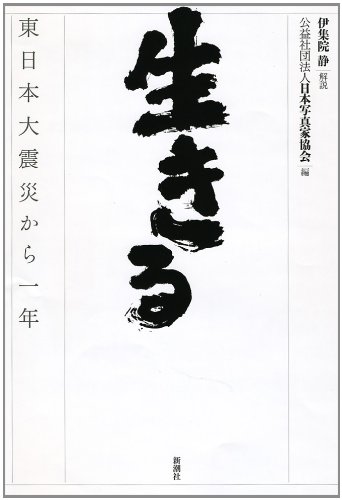 伊集院 静 解説
公益社団法人日本写真家協会 編
生きる
東日本大震災から一年
新潮社